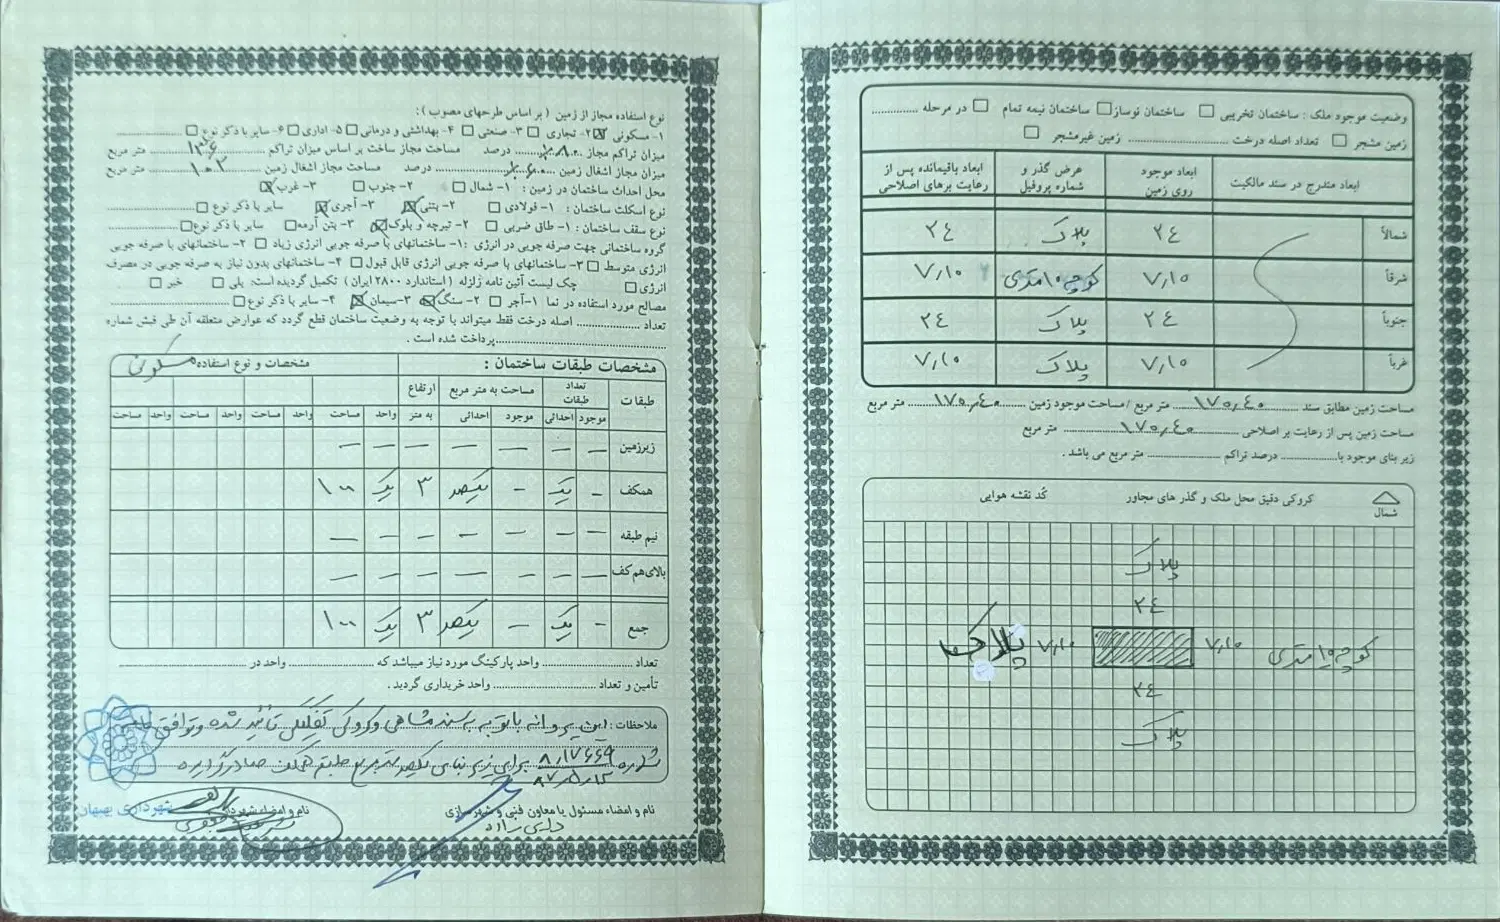 وضعیت موجود ملک : ساختمان تخریبی □ ساختمان نوساز □ ساختمان نیمه تمام □ در مرحله ............
زمین مشجر □ تعداد اصله درخت ........................ زمین غیرمشجر □
ابعاد مندرج در سند مالکیت | ابعاد موجود روی زمین | عرض گذر و شماره پروفیل | ابعاد باقیمانده پس از رعایت برهای اصلاحی
شمالاً | ۲۴ | پلاک | ۲۴
شرقاً | ۷٫۱۰ | کوچه ۱۰ متری | ۷٫۱۰
جنوباً | ۲۴ | پلاک | ۲۴
غرباً | ۷٫۱۰ | پلاک | ۷٫۱۰
مساحت زمین مطابق سند ۱۷۰٫۴۰ متر مربع / مساحت موجود زمین ۱۷۰٫۴۰ متر مربع
مساحت زمین پس از رعایت بر اصلاحی ۱۷۰٫۴۰ متر مربع
زیر بنای موجود با .............. درصد تراکم .............. متر مربع می باشد .
شمال
کروکی دقیق محل ملک و گذر های مجاور
کُد نقشه هوایی
پلاک
۲۴
کوچه ۱۰ متری ۷٫۱۰ ۷٫۱۰ پلاک
۲۴
پلاک
نوع استفاده مجاز از زمین ( بر اساس طرحهای مصوب ) :
۱- مسکونی ☒ ۲- تجاری □ ۳- صنعتی □ ۴- بهداشتی و درمانی □ ۵- اداری □ ۶- سایر با ذکر نوع □ ............
میزان تراکم مجاز ٪۸۰ درصد مساحت مجاز ساخت بر اساس میزان تراکم ۱۳۶ متر مربع
میزان مجاز اشغال زمین ٪۶۰ درصد مساحت مجاز اشغال زمین ۱۰۲ متر مربع
محل احداث ساختمان در زمین : ۱- شمال □ ۲- جنوب □ ۳- غرب ☒
نوع اسکلت ساختمان : ۱- فولادی □ ۲- بتنی ☒ ۳- آجری ☒ سایر با ذکر نوع □ ............
نوع سقف ساختمان : ۱- طاق ضربی □ ۲- تیرچه و بلوک ☒ ۳- بتن آرمه □ سایر با ذکر نوع □ ............
گروه ساختمانی جهت صرفه جویی در انرژی : ۱- ساختمانهای با صرفه جویی انرژی زیاد □ ۲- ساختمانهای با صرفه جویی
انرژی متوسط □ ۳- ساختمانهای با صرفه جویی انرژی قابل قبول □ ۴- ساختمانهای بدون نیاز به صرفه جویی در مصرف
انرژی □ چک لیست آئین نامه زلزله ( استاندارد ۲۸۰۰ ایران ) تکمیل گردیده است: بلی □ خیر □
مصالح مورد استفاده در نما ۱-آجر □ ۲- سنگ ☒ ۳-سیمان ☒ ۴- سایر با ذکر نوع □ ............
تعداد ............ اصله درخت فقط میتواند با توجه به وضعیت ساختمان قطع گردد که عوارض متعلقه آن طی فیش شماره
............ پرداخت شده است .
مشخصات طبقات ساختمان : مشخصات و نوع استفاده مسکونی
طبقات | تعداد طبقات | مساحت به متر مربع | ارتفاع
موجود | احداثی | موجود | احداثی | به متر | واحد | مساحت | واحد | مساحت | واحد | مساحت | واحد | مساحت
زیرزمین | — | — | — | — | — | — | —
همکف | – | یک | – | یکصد | ۳ | یک | ۱۰۰
نیم طبقه | — | — | — | — | — | — | —
بالای هم کف | — | — | — | — | — | — | —
جمع | – | یک | – | یکصد | ۳ | یک | ۱۰۰
تعداد ............ واحد پارکینگ مورد نیاز میباشد که ............ واحد در ............
تأمین و تعداد ............ واحد خریداری گردید .
ملاحظات : این پروانه باتوجه به سند مشاهی وکروکی تفکیکی تائید شده وتوافق
شماره ۸٫۱۷۶۶۹ ۹۷٫۵٫۱۲ برای زیربنای یکصد مترمربع همکف صادر گردیده
نام و امضاء مسئول یا معاون فنی و شهرسازی
نام و امضاء شهردار
شهرداری بهبهان